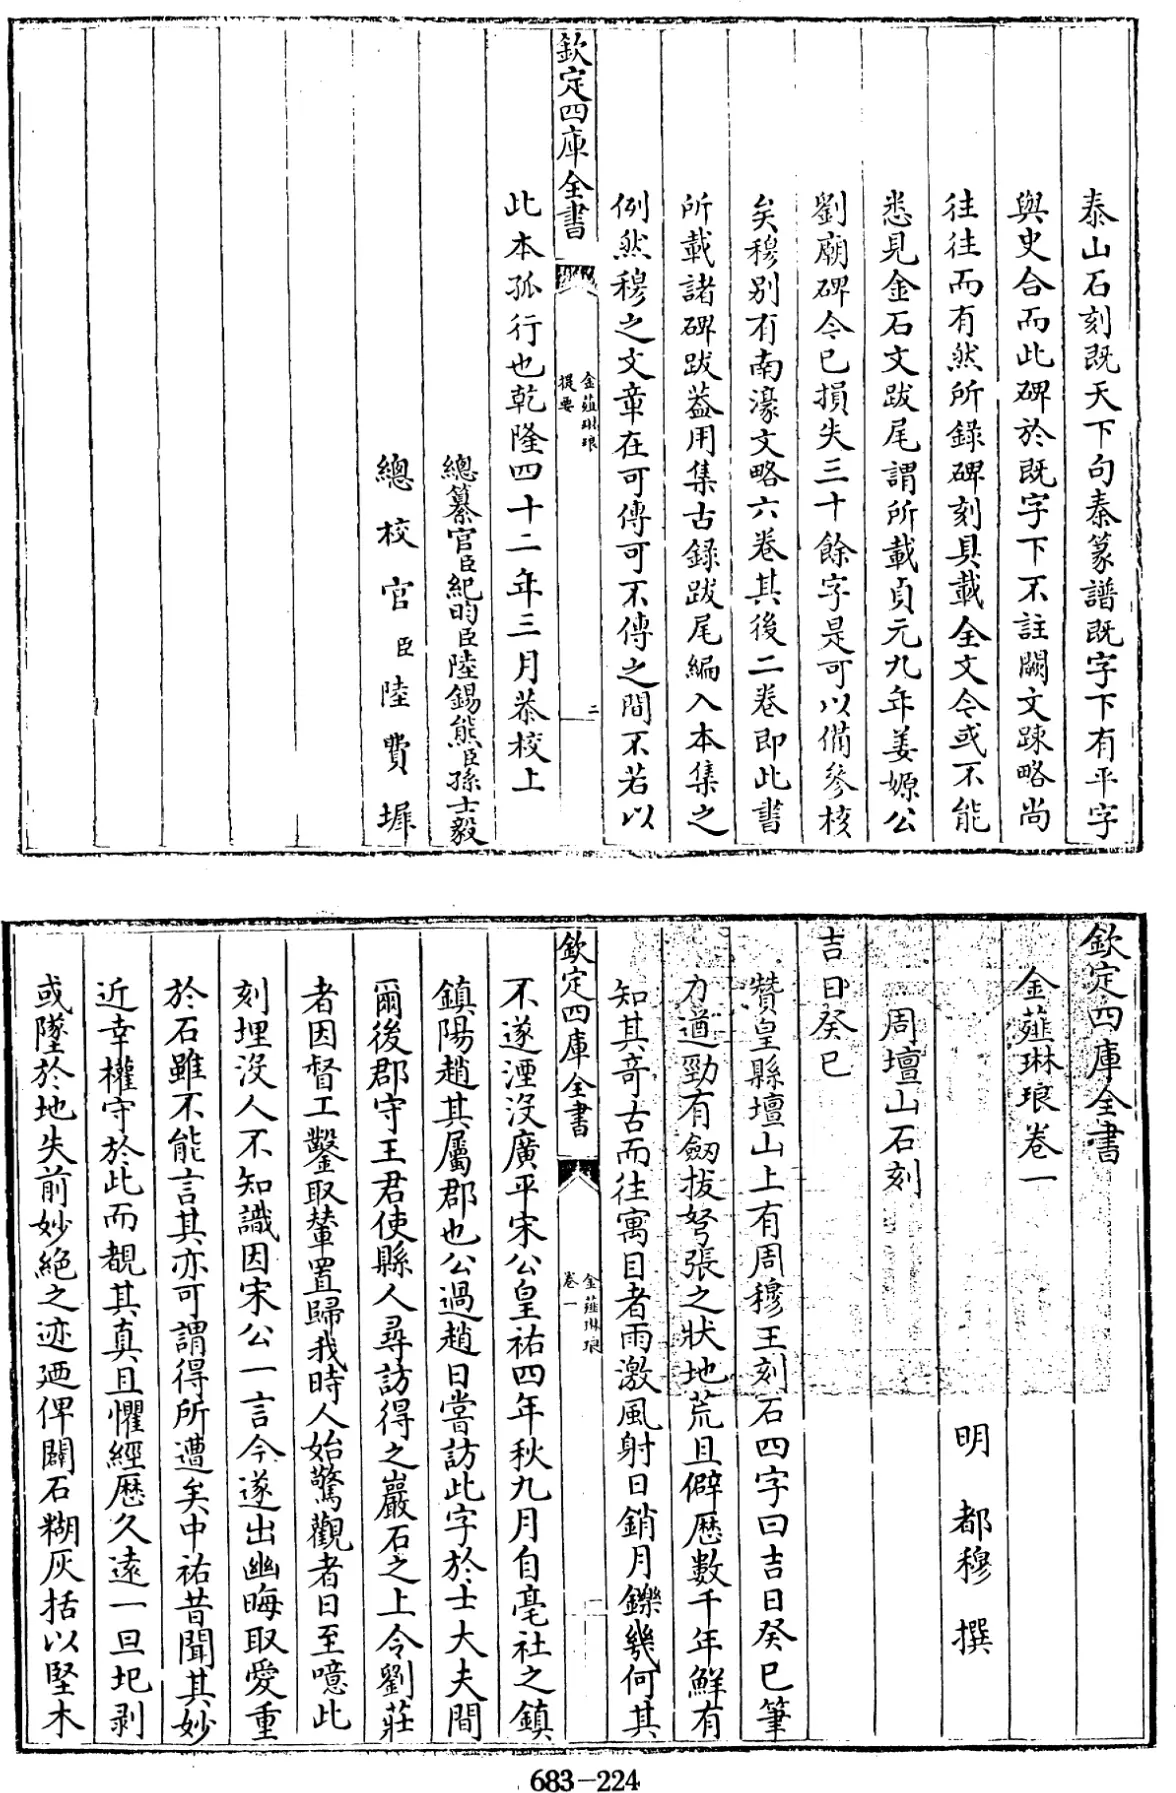 泰山石刻既天下句秦篆譜既字下有平字
與史合而此碑於既字下不註闕文踈略尚
徃徃而有然所錄碑刻具載全文今或不能
悉見金石文跋尾謂所載貞元九年姜嫄公
劉廟碑今已損失三十餘字是可以備參核
矣穆别有南濠文略六卷其後二卷即此書
所載諸碑跋葢用集古錄跋尾編入本集之
例然穆之文章在可傳可不傳之間不若以
欽定四庫全書
金薤琳琅
提要
二
此本孤行也乾隆四十二年三月恭校上
總纂官臣紀昀臣陸錫熊臣孫士毅
總校官臣陸費墀
欽定四庫全書
金薤琳琅卷一
明 都穆 撰
周壇山石刻
吉日癸巳
贊皇縣壇山上有周穆王刻石四字曰吉日癸巳筆
力遒勁有劒拔弩張之狀地荒且僻歷數千年鮮有
知其竒古而往寓目者雨激風射日銷月鑠幾何其
欽定四庫全書
金薤琳琅
卷一
一
不遂湮没廣平宋公皇祐四年秋九月自亳社之鎮
鎮陽趙其屬郡也公過趙日嘗訪此字於士大夫間
爾後郡守王君使縣人尋訪得之巖石之上令劉莊
者因督工鑿取輦置歸我時人始驚觀者日至噫此
刻埋没人不知識因宋公一言今遂出幽晦取愛重
於石雖不能言其亦可謂得所遭矣中祐昔聞其妙
近幸權守於此而覩其真且懼經歷久遠一旦圯剥
或墜於地失前妙絶之迹廼俾闢石糊灰括以堅木
683-224